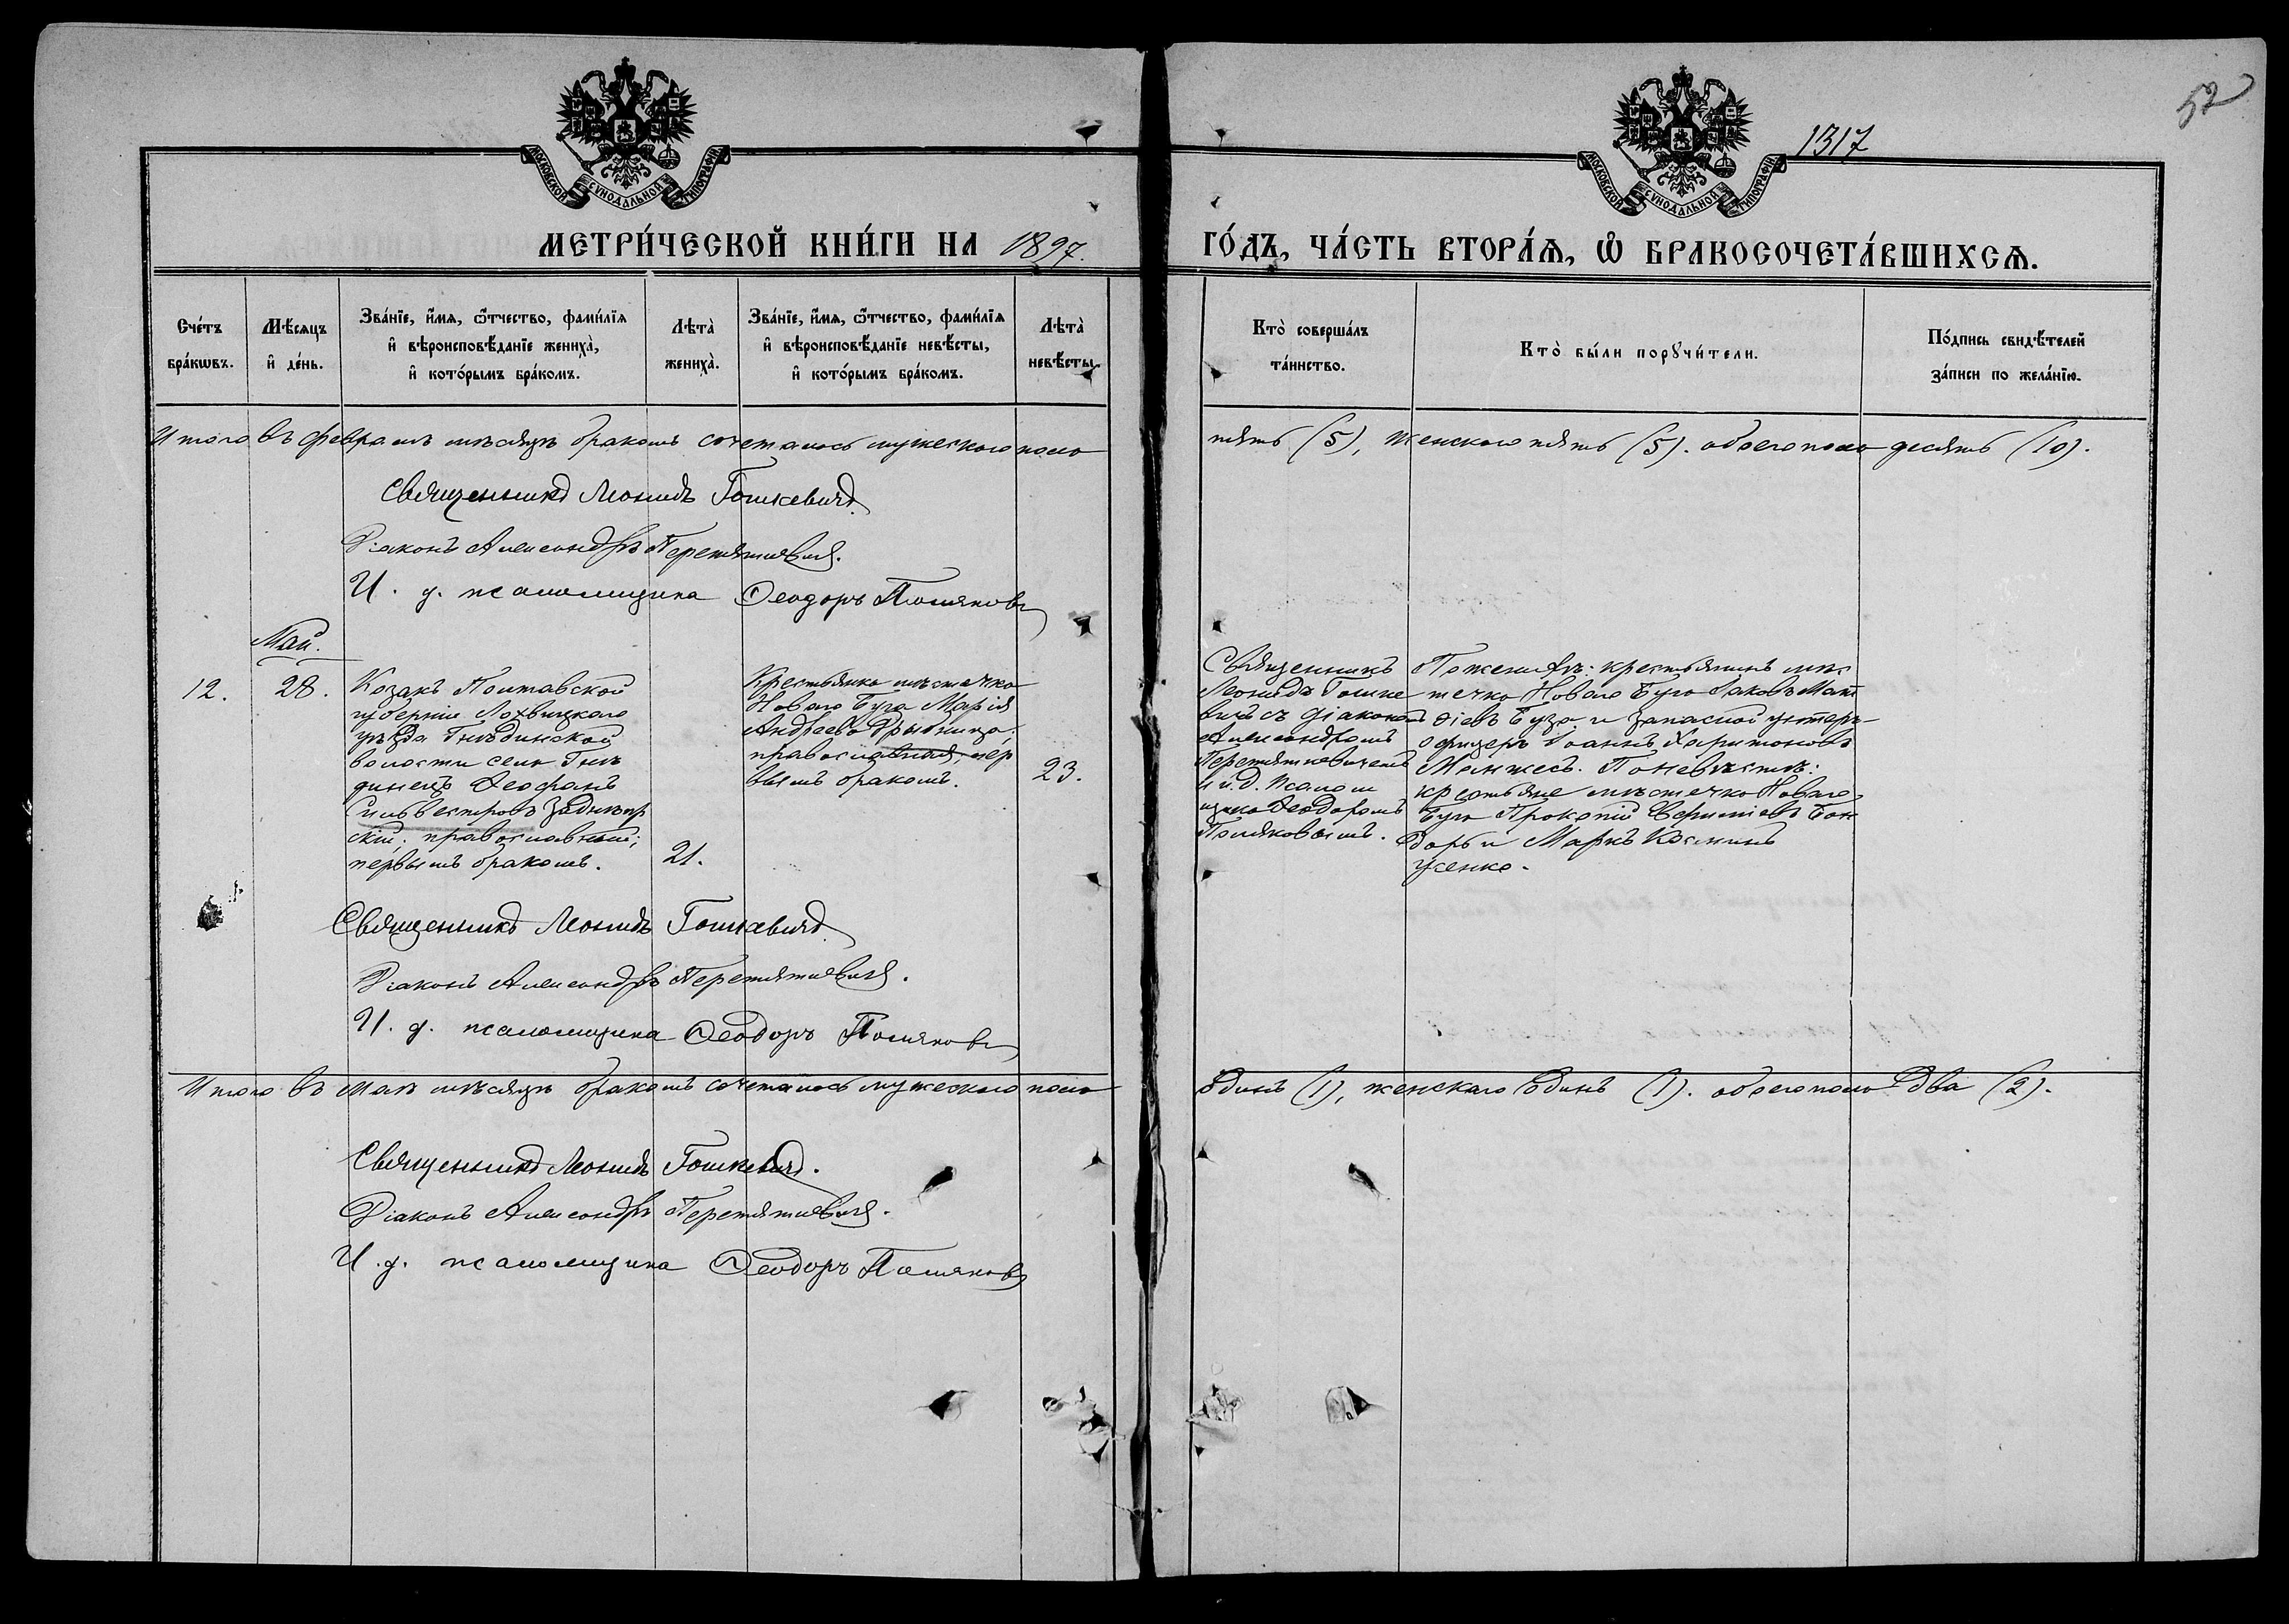 52
1317
МОСКОВСКОЙ СѴНОДАЛЬНОЙ ТИПОГРАФІИ
МОСКОВСКОЙ СѴНОДАЛЬНОЙ ТИПОГРАФІИ
МЕТРИ́ЧЕСКОЙ КНИ́ГИ НА 1897. ГО́ДЪ, ЧА́СТЬ ВТОРА́Ѧ, Ѽ БРАКОСОЧЕТА́ВШИХСѦ.
Сче́тъ
бра́кѡвъ.
Мѣ́сяцъ
и҆ де́нь.
Зва́нїе, и҆́мя, ѻ҆́тчество, фами́лїя
и҆ вѣроисповѣ́данїе жениха̀,
и҆ кото́рымъ бра́комъ.
Лѣта̀
жениха̀.
Зва́нїе, и҆́мя, ѻ҆́тчество, фами́лїя
и҆ вѣроисповѣ́данїе невѣ́сты,
и҆ кото́рымъ бра́комъ.
Лѣта̀
невѣ́сты.
Кто̀ соверша́лъ
та́инство.
Кто̀ бы́ли порꙋчи́тели.
По́дпись свидѣ́телей
за́писи по жела́нїю.
Итого въ февралѣ мѣсяцѣ бракомъ сочеталось мужескаго пола пять (5), женскаго пять (5). обоего пола десять (10).
Священникъ Леонидъ Гошкевичъ
Діаконъ Александръ Перетяткевичъ.
И. д. псаломщика Ѳеодоръ Поляковъ
Май.
12.
28.
Козакъ Полтавской
губерніи Лохвицкаго
уѣзда Гнѣдинской
волости села Гнѣ
динецъ Ѳеофанъ
Сильвестровъ Заднѣпр
скій, православный,
первымъ бракомъ.
21.
Крестьянка мѣстечка
Новаго Буга Марія
Андреева
православная, пер
вымъ бракомъ.
23.
Священникъ
Леонидъ Гошке
вичъ съ діакономъ
Александромъ
Перетяткевичемъ
и и.д. псалом
щика Ѳеодоромъ
Поляковымъ.
По женихѣ: крестьянинъ мѣс
течка Новаго Буга Іаковъ Мат
ѳіевъ Буза и запасной унтеръ-
офицеръ Іоаннъ Харитоновъ
Мамжесъ. По невѣстѣ:
крестьяне мѣстечка Новаго
Буга Прокопій Бон
дарь и Маркъ Косминъ
Усенко.
Священникъ Леонидъ Гошкевичъ
Діаконъ Александръ Перетяткевичъ.
И. д. псаломщика Ѳеодоръ Поляковъ
Итого въ маѣ мѣсяцѣ бракомъ сочеталось мужескаго пола одинъ (1), женскаго одинъ (1). обоего пола два (2).
Священникъ Леонидъ Гошкевичъ.
Діаконъ Александръ Перетяткевичъ.
И. д. псаломщика Ѳеодоръ Поляковъ